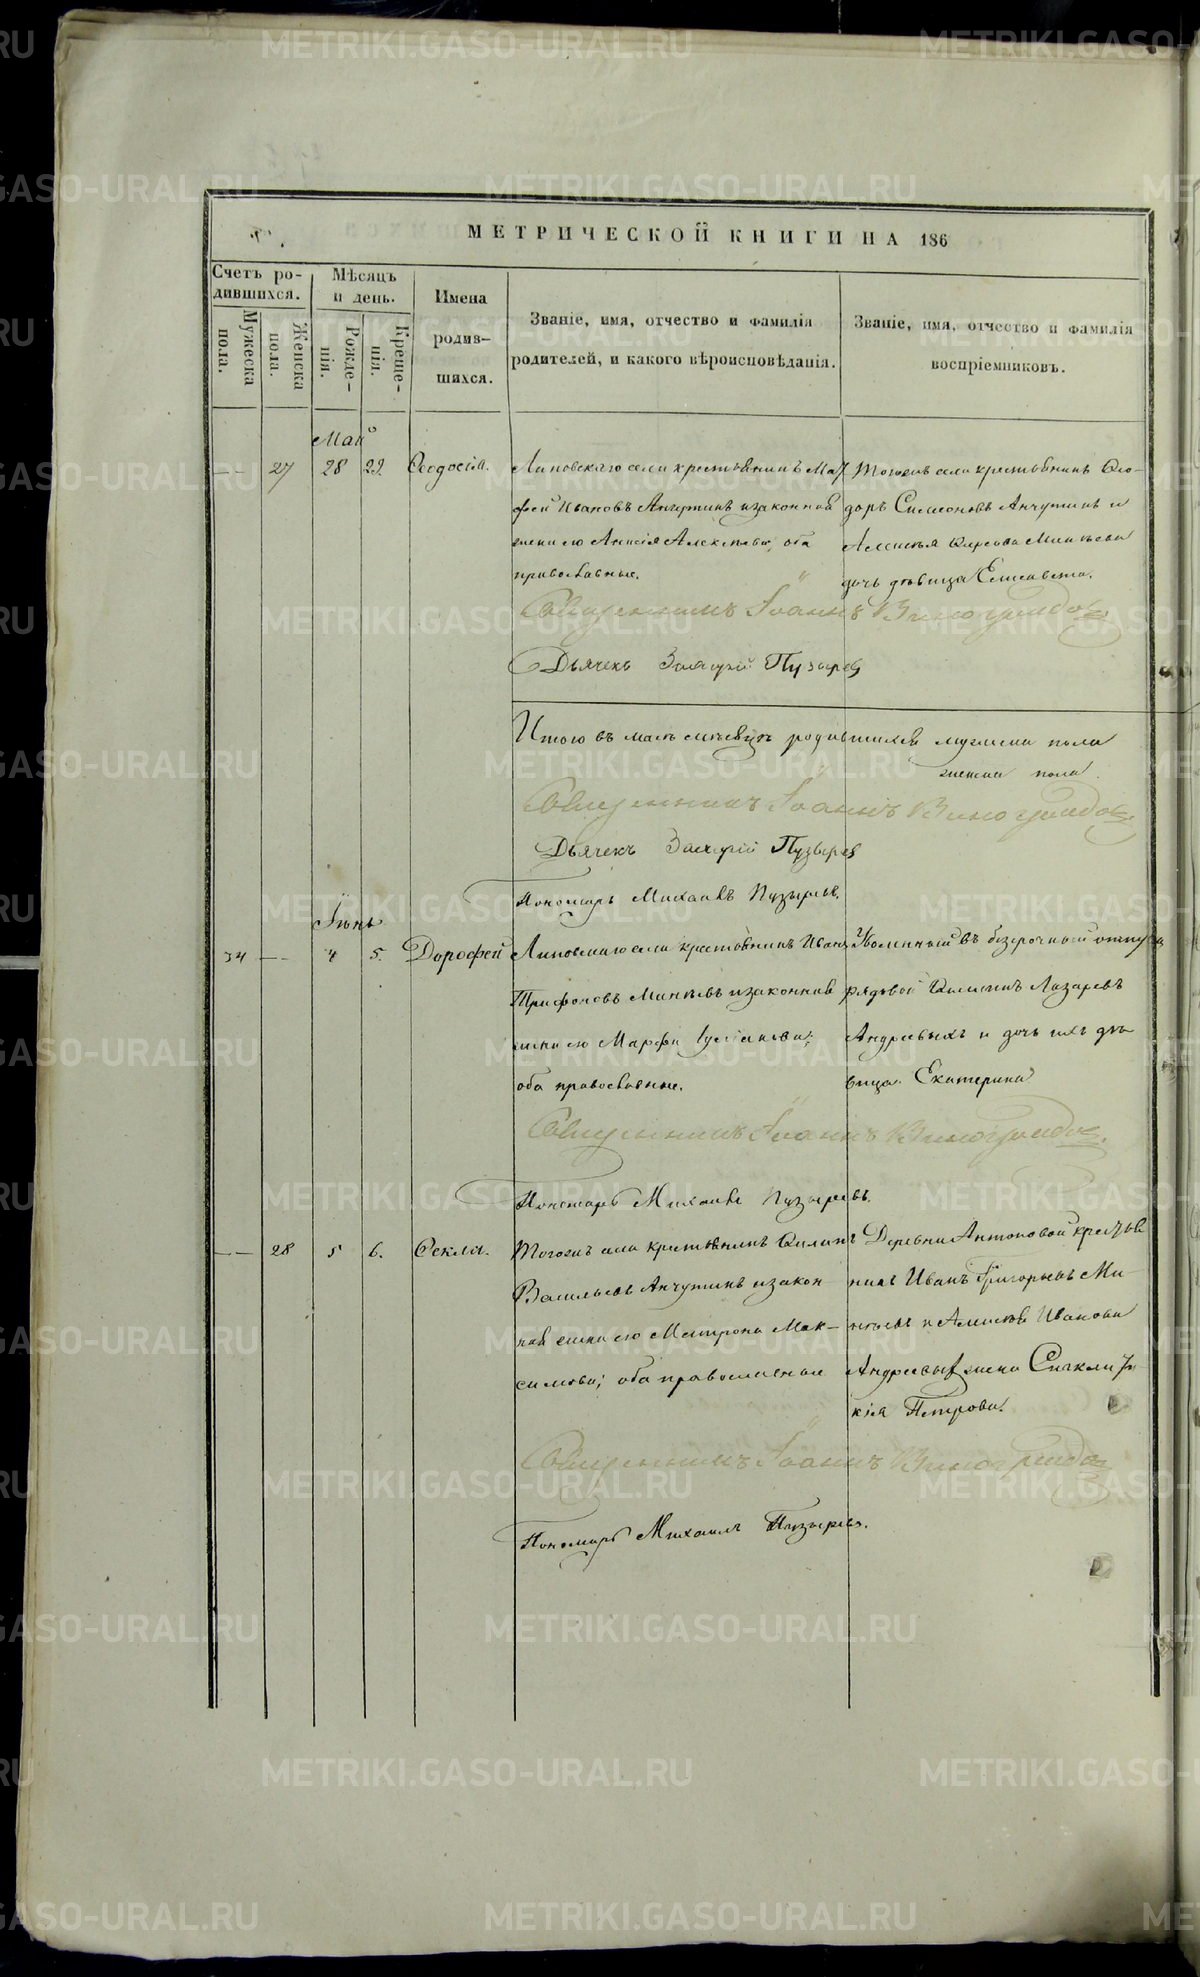 МЕТРИЧЕСКОЙ КНИГИ НА 186
Счетъ ро-
дившихся.
Мужеска
пола.
Женска
пола.
Мѣсяцъ
и день.
Рожде-
нія.
Креще-
нія.
Имена
родив-
шихся.
Званіе, имя, отчество и фамилія
родителей, и какого вѣроисповѣданія.
Званіе, имя, отчество и фамилія
воспріемниковъ.
Май
27 28 29. Ѳеодосія.
Липовскаго села крестьянинъ Мат
фей Ивановъ Анчутинъ и законная
жена его Алексѣева, оба
православные.
Тогожъ села крестьянинъ Ѳео-
доръ Симеоновъ Анчутинъ и
Минѣева
дочь дѣвица Елисавета.
Священникъ Іоаннъ Виноградовъ
Дьячекъ Захарій Пузырев
Итого въ маѣ мѣсяцѣ родившихся мужеска пола
женска пола.
Священникъ Іоаннъ Виноградовъ
Дьячекъ Захарій Пузырев
Пономарь Михаилъ Пузыревъ.
Іюнь
34 4 5. Дорофей
Липовскаго села крестьянинъ Иванъ
Трифоновъ Минѣевъ и законная
жена его Марфа
оба православные.
Уволенный въ безсрочный отпускъ
рядовой Филиппъ Лазаревъ
Андреевыхъ и дочь ихъ дѣ-
вица Екатерина
Священникъ Іоаннъ Виноградовъ.
Пономарь Михаилъ Пузыревъ.
28 5 6. Ѳекла.
Тогожъ села крестьянинъ Филипъ
Васильевъ Анчутинъ и закон-
ная жена его Матрона Мак-
симова; оба православные
Деревни Антоновой крестья
нинъ Иванъ Григорьевъ Ми-
нѣевъ и Алексѣя Иванова
Андреевых жена
кія Петрова.
Священникъ Іоаннъ Виноградовъ
Пономарь Михаилъ Пузыревъ.
METRIKI.GASO-URAL.RU